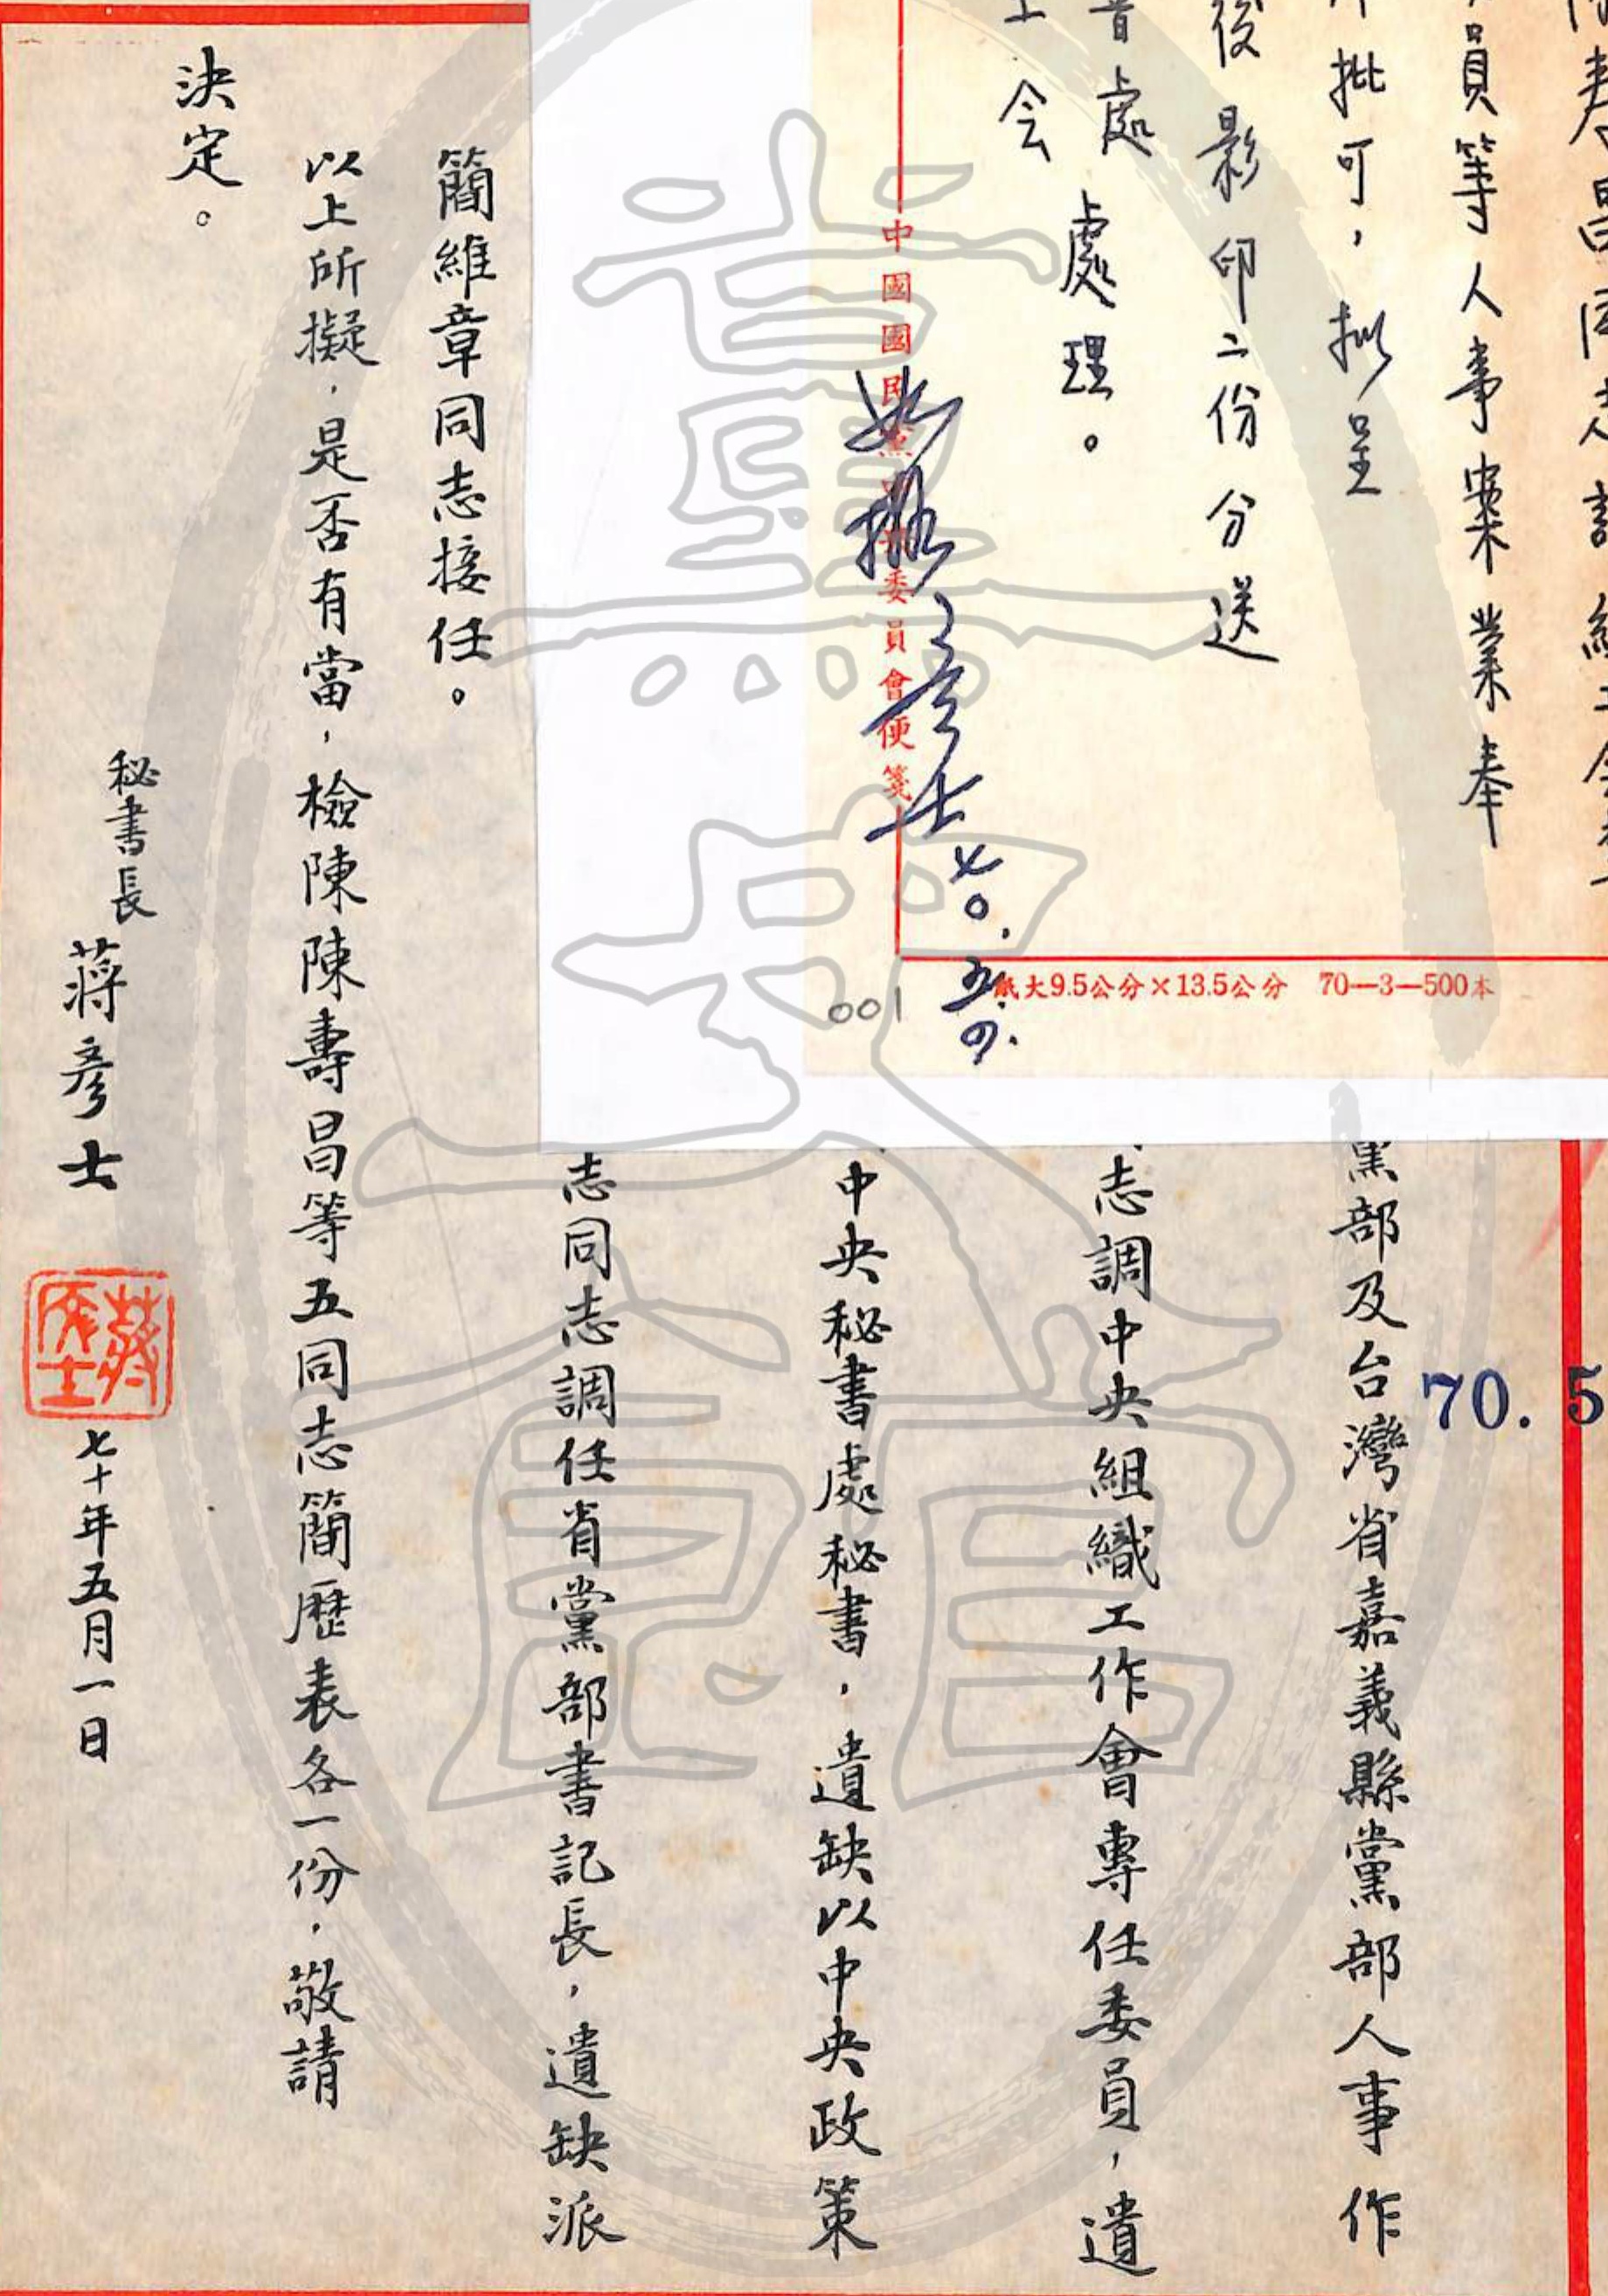 員等人事案業奉
批可，拟呈
後影印二份分送
處處理。
会
如擬
彥士
七〇.五.四.
中國國民黨中央委員會便箋
紙大9.5公分×13.5公分 70—3—500本
001
70. 5
黨部及台灣省嘉義縣黨部人事作
志調中央組織工作會專任委員，遺
中央秘書處秘書，遺缺以中央政策
志同志調任省黨部書記長，遺缺派
簡維章同志接任。
以上所擬，是否有當，檢陳陳壽昌等五同志簡歷表各一份，敬請
決定。
秘書長 蔣彥士
蔣彥士
七十年五月一日